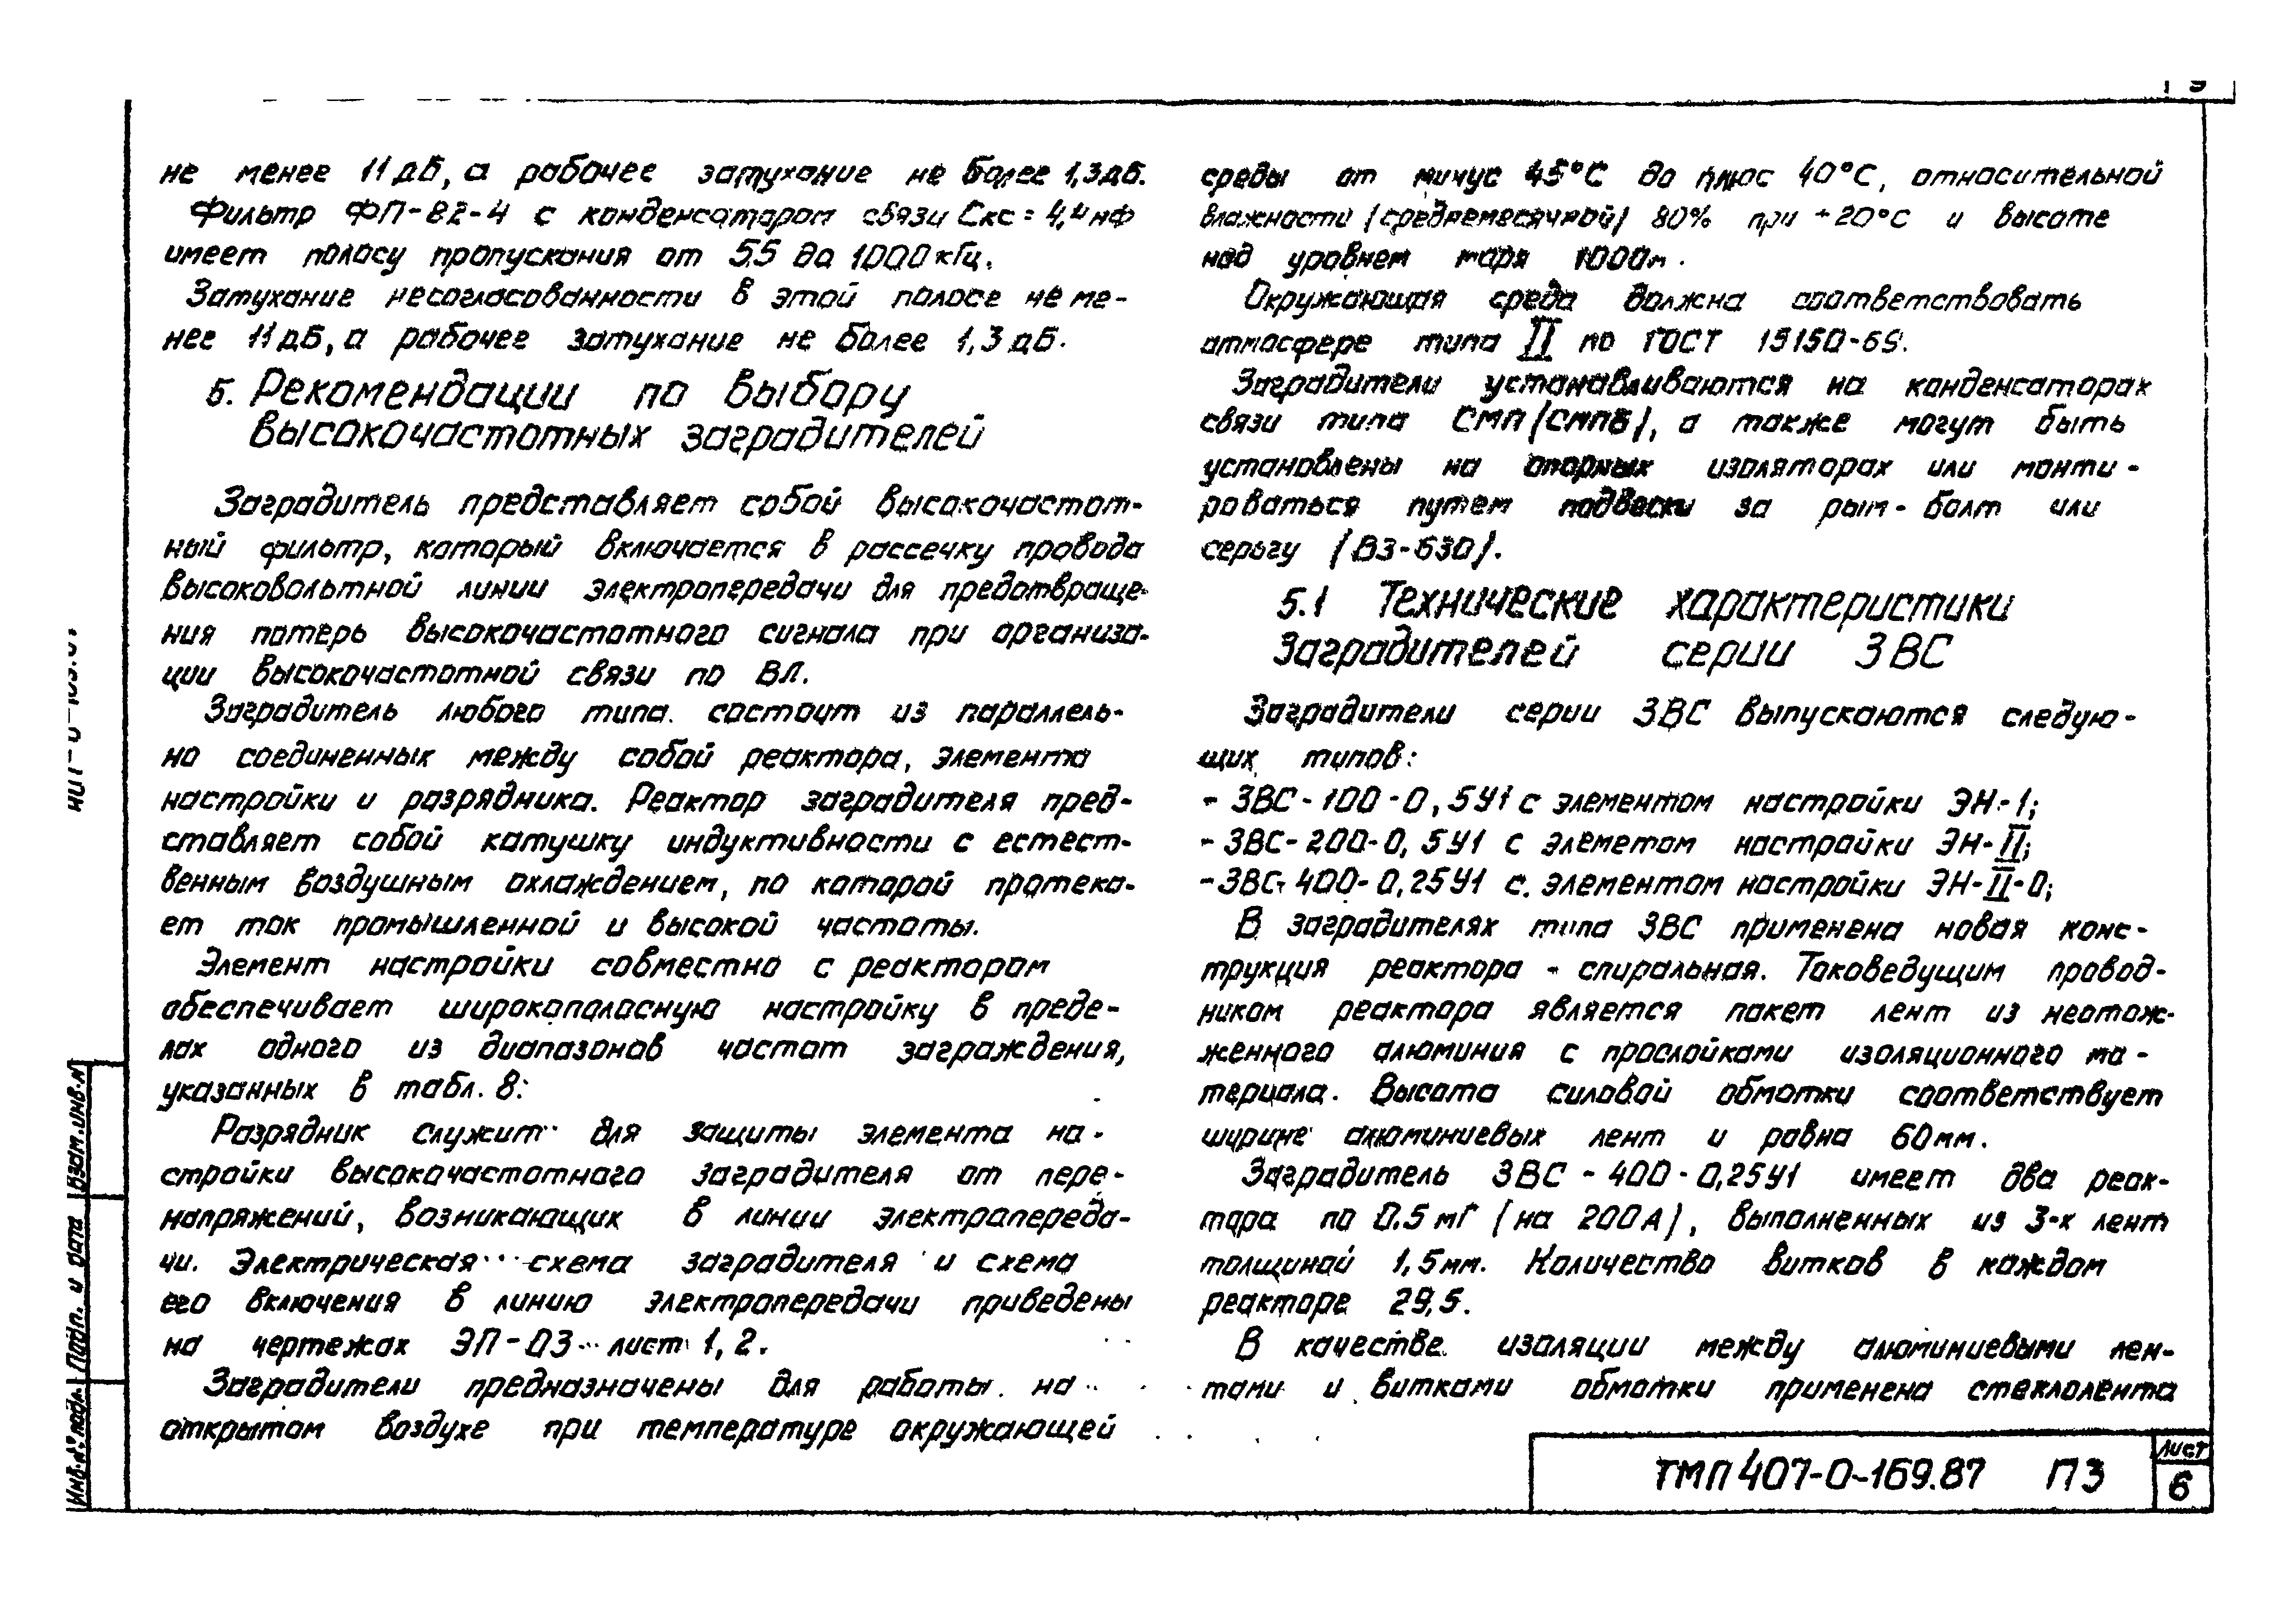 не менее 11 дБ, а рабочее затухание не более 1,3 дБ.
Фильтр ФП-82-4 с конденсатором связи Скс = 4,4 нФ
имеет полосу пропускания от 55 до 1000 кГц.
Затухание несогласованности в этой полосе не ме-
нее 11 дБ, а рабочее затухание не более 1,3 дБ.
5. Рекомендации по выбору
высокочастотных заградителей
Заградитель представляет собой высокочастот-
ный фильтр, который включается в рассечку провода
высоковольтной линии электропередачи для предотвраще-
ния потерь высокочастотного сигнала при организа-
ции высокочастотной связи по ВЛ.
Заградитель любого типа состоит из параллель-
но соединенных между собой реактора, элемента
настройки и разрядника. Реактор заградителя пред-
ставляет собой катушку индуктивности с естест-
венным воздушным охлаждением, по которой протека-
ет ток промышленной и высокой частоты.
Элемент настройки совместно с реактором
обеспечивает широкополосную настройку в преде-
лах одного из диапазонов частот заграждения,
указанных в табл. 8:
Разрядник служит для защиты элемента на-
стройки высокочастотного заградителя от пере-
напряжений, возникающих в линии электропереда-
чи. Электрическая схема заградителя и схема
его включения в линию электропередачи приведены
на чертежах ЭП-03 лист 1, 2.
Заградители предназначены для работы на
открытом воздухе при температуре окружающей
среды от минус 45°С до плюс 40°С, относительной
влажности (среднемесячной) 80% при +20°С и высоте
над уровнем моря 1000м.
Окружающая среда должна соответствовать
атмосфере типа II по ГОСТ 15150-69.
Заградители устанавливаются на конденсаторах
связи типа СМП (СМПБ), а также могут быть
установлены на опорных изоляторах или монти-
роваться путем подвески за рым-болт или
серьгу (ВЗ-630).
5.1 Технические характеристики
заградителей серии ЗВС
Заградители серии ЗВС выпускаются следую-
щих типов:
- ЗВС-100-0,5У1 с элементом настройки ЭН-1;
- ЗВС-200-0,5У1 с элеметом настройки ЭН-II;
- ЗВС-400-0,25У1 с. элементом настройки ЭН-II-0;
В заградителях типа ЗВС применена новая конс-
трукция реактора - спиральная. Токоведущим провод-
ником реактора является пакет лент из неотож-
женного алюминия с прослойками изоляционного ма-
териала. Высота силовой обмотки соответствует
ширине алюминиевых лент и равна 60мм.
Заградитель ЗВС-400-0,25У1 имеет два реак-
тора по 0.5 мГ (на 200А), выполненных из 3-х лент
толщиной 1,5мм. Количество витков в каждом
реакторе 29,5.
В качестве изоляции между алюминиевыми лен-
тами и витками обмотки применена стеклолента
ТМП 407-0-169.87 ПЗ
Лист
6
Взам.инв.№
Подп. и дата
Инв.№ подл.